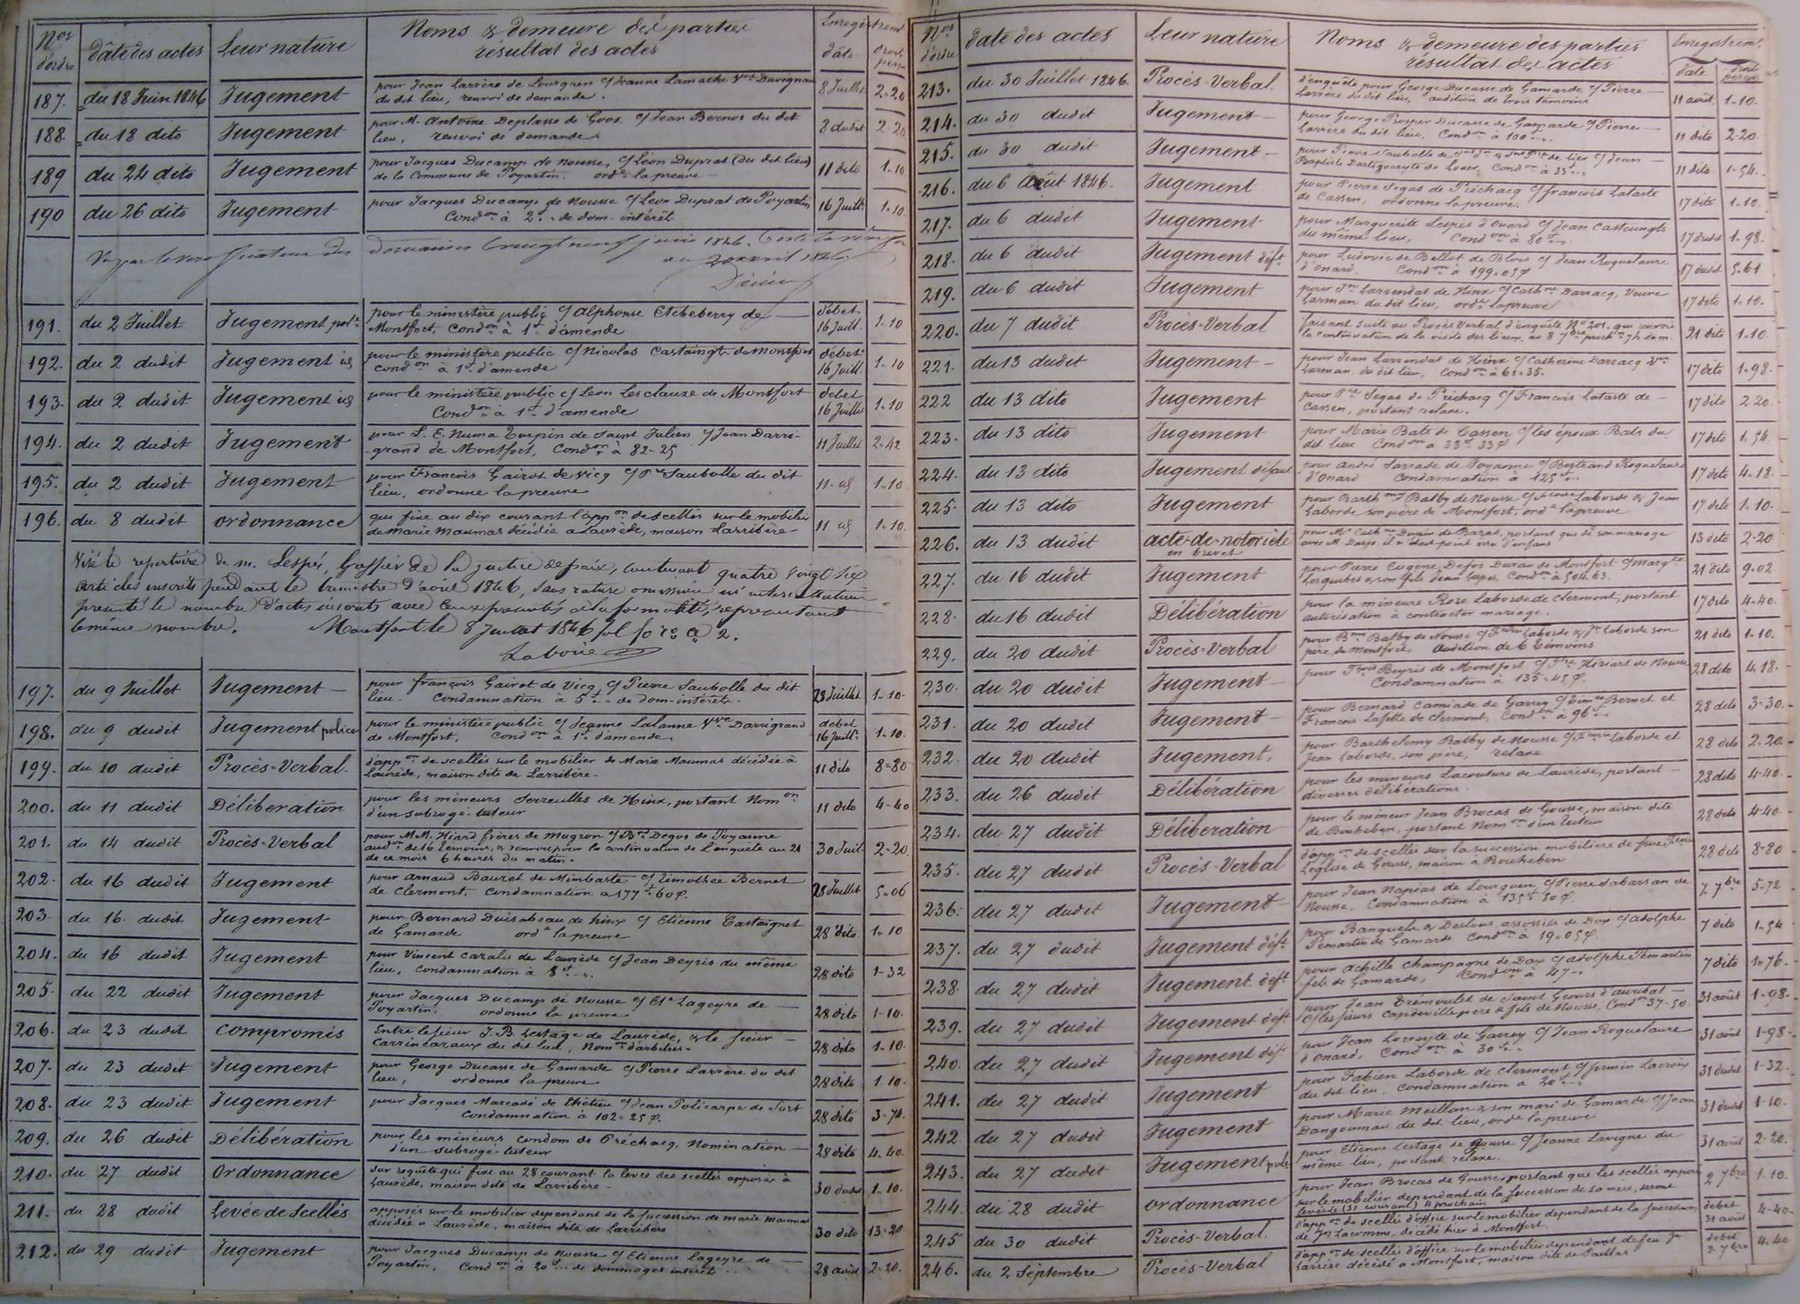 Nos d'ordre | dâte des actes | Leur nature | Noms & demeure des parties résultat des actes | Enregistrement date | droits perçus
187. du 18 Juin 1846 Jugement pour Jean Larrère de Lourquen c/ Jeanne Lamathe Vve Duvignau 8 Juillet 2-20
du dit lieu, renvoi de demande.
188. du 18 dito Jugement pour M. Antoine Deplasse de Goos c/ Jean Bernos du dit 8 dudit 2-20
lieu, renvoi de demande
189 du 24 dito Jugement pour Jacques Ducamp de nousse, c/ Léon Duprat (du dit lieu) 11 dito 1-10
de la Commune de Poyartin. ordne la preuve
190 du 26 dito Jugement pour Jacques Ducamp de Nousse c/ Léon Duprat de Poyartin 16 Juillt 1-10.
Condon à 2f - de dom-intérêt
Vu par le vérificateur des domaines le vingt neuf juin 1846.
191. du 2 Juillet Jugement polce pour le ministère public c/ Alphonse Etcheberry de débet. 16 Juill. 1-10
Montfort, Condon à 1f d'amende
192. du 2 dudit Jugement id pour le ministère public c/ Nicolas Castaingt de Montfort débet. 16 Juill. 1-10
condon à 1f d'amende
193. du 2 dudit Jugement id pour le ministère public c/ Léon Lesclauze de Montfort débet 16 Juillet 1-10
Condon à 1f d'amende
194. du 2 dudit Jugement pour L. E. Numa Turpin de Saint Julien c/ Jean Darri- 11 Juillet 2-42
-grand de Montfort, Condon à 82-25
195. du 2 dudit Jugement pour François Gairot de Vicq c/ Pre Saubolle du dit 11-id 1-10
lieu, ordonne la preuve
196. du 8 dudit ordonnance qui fixe au dix courant l'appon de scellés sur le mobilier 11 id 1-10.
de marie maumas décédée a Laurède, maison Larribère
Visé le repertoire de m. Lespés, Greffier de la justice de paix, contenant quatre vingt six
articles inscrits pendant le trimestre d'avril 1846, sans rature omission ni intercallation
présenté le nombre d'actes inscrits avec ceux présentés à la formalité, représentant
le même nombre. Montfort le 8 Juillet 1846
Laboire
197. du 9 Juillet Jugement pour françois Gairot de Vicq c/ Pierre Saubolle du dit 28 Juillet 1-10
lieu. Condamnation à 5f - de dom-intérêt
198. du 9 dudit Jugement police pour le ministère public c/ Jeanne Lalanne Vve Darrigrand débet 16 Juillt 1-10.
de Montfort. Condon à 1f d'amende
199. du 10 dudit Procès-Verbal. d'appon de scellés sur le mobilier de Marie Maumas décédée à 11 dito 8-80
Laurède, maison dite de Larribère
200. du 11 dudit Déliberation pour les mineurs Serreulles de Hinx, portant Nomon 11 dito 4-40
d'un subrogé-tuteur
201. du 14 dudit Procès-Verbal pour M.M. Hiard frères de Mugron c/ Bd Degos de Poyanne 30 Juil 2-20.
audon de 16 témoins, & renvoi pour la continuation de l'enquête au 21
de ce mois 6 heures du matin.
202. du 16 dudit Jugement pour arnaud Bauret de Mimbaste c/ Timothée Bernet 28 Juillet 5-06
de Clermont, Condamnation a 177f 60c.
203. du 16. dudit Jugement pour Bernard Duisabeau de hinx c/ Etienne Castaignet 28 dito. 1-10
de Gamarde ordne la preuve
204. du 16 dudit Jugement pour Vincent Cazalis de Laurède c/ Jean Deyris du même 28 dito 1-32
lieu, Condamnation à 8f
205. du 22 dudit Jugement pour Jacques Ducamp de Nousse c/ Ete Lageyre de 28 dito 1-10.
Poyartin. ordonne la preuve
206. du 23 dudit Compromis Entre le sieur J. B. Lestage de Laurède, & le sieur 28 dito 1-10.
Carrincazaux du dit lieu, Nomon d'arbitres.
207. du 23 dudit Jugement pour George Ducasse de Gamarde c/ Pierre Larrère du dit 28 dito 1 10.
lieu, ordonne la preuve
208. du 23 dudit Jugement pour Jacques Marcadé de Thétieu c/ Jean Policarpe de Sort 28 dito 3-74.
Condamnation à 102-25c.
209. du 26 dudit Délibération pour les mineurs Condom de Préchacq, Nomination 28 dito 4. 40.
d'un subrogé-tuteur
210. du 27 dudit Ordonnance sur requête qui fixe au 28 courant la levée des scellés apposés à 30 dudit 1-10.
Laurède, maison dite de Larribère
211. du 28 dudit Levée de Scellés apposés sur le mobilier dépendant de la succession de marie maumas 30 dito 13-20
décédée a Laurède, maison dite de Larribère
212. du 29 dudit Jugement pour Jacques Ducamp de Nousse c/ Etienne Lageyre de 28 août 2-20.
Poyartin. Condon à 20f de dommages intérêt
Nos d'ordre | date des actes | Leur nature | Noms & demeure des parties résultat des actes | Enregistremt date | droits perçus
213. du 30 Juillet 1846. Procès-Verbal d'enquête pour George Ducasse de Gamarde c/ Pierre 11 août 1-10.
Larrère du dit lieu, audition de trois témoins
214. du 30 dudit Jugement pour George Prosper Ducasse de Gamarde c/ Pierre 11 dito 2-20.
Larrère du dit lieu, Condon à 100f
215. du 30 dudit Jugement pour Pierre Saubolle de c/ Jean 11 dito 1-54.
Baptiste Dartigoeyte de Louer. Condon à 35f
216. du 6 Août 1846. Jugement pour Pierre Segas de Préchacq c/ françois Lataste 17 dito 1-10.
de Cassen, ordonne la preuve.
217. du 6 dudit Jugement pour Marguerite Lespés d'Onard c/ Jean Casteungts 17 dudit 1-98.
du même lieu, Condon à 80f
218. du 6 dudit Jugement déft. pour Ludovic de Bellot de Blois c/ Jean Roquelaure 17 dudit 5-61
d'onard. Condon à 199-05c
219. du 6 dudit Jugement pour Jn Larrendat de Hinx c/ Cathne Darracq, Veuve 17 dito 1-10.
Larman du dit lieu, ordne la preuve
220. du 7 dudit Procès-Verbal faisant suite au Procès Verbal d'enquête No 201. qui renvoie 21 dito 1.10.
la continuation de la visite des lieux, au 8 7bre proch. 7 h. du m.
221. du 13 dudit Jugement pour Jean Larrendat de Hinx c/ Catherine Darracq Vve 17 dito 1-98.
Larman. du dit lieu, Condon à 61-35.
222 du 13 dito Jugement pour Pre Segas de Préchacq c/ François Lataste de 17 dito 2 20.
Cassen, portant relaxe.
223. du 13 dito Jugement pour Marie Bats de Cassen c/ les époux Bats du 17 dito 1.54
dit lieu Condon a 33f 33c
224. du 13 dito Jugement défaut pour andré Sarrade de Poyanne c/ Bertrand Roquelaure 17 dito 4-18.
d'Onard Condamnation à 125f
225. du 13 dito Jugement pour Barthmy Balby de Nousse c/ Laborde & Jean 17 dito 1-10.
Laborde son père de Montfort, ordne la preuve
226. du 13 dudit acte-de-notoriété en brevet pour Me Cathne Dupin de Barat, portant que de son mariage 13 dito 2-20
avec M. Darjo, il n'est point né d'enfans
227. du 16 dudit Jugement pour Pierre Eugène Defos Durau de Montfort c/ Margte 21 dito 9.02
Lesquibes & son fils Jean Condon à 504. 63.
228. du 16 dudit Délibération pour la mineure Rose Laborde de Clermont, portant 17 dito 4-40.
autorisation à contracter mariage.
229. du 20 dudit Procès-Verbal pour Bmy Balby de Nousse c/ Laborde & Jn Laborde son 21 dito 1-10.
père de montfort Audition de 6 témoins
230. du 20 dudit Jugement pour Fçois Buyris de Montfort c/ Pre Hiriart de Nousse 28 dito 4 18.
Condamnation à 135-45c.
231. du 20 dudit Jugement pour Bernard Camiade de Garrey c/ Timée Bernet et 28 dito 3-30.
François Lafitte de Clermont, Condon à 96f
232. du 20 dudit Jugement. pour Barthelemy Balby de Nousse c/ Laborde et 28 dito 2-20.
Jean Laborde, son père, relaxe
233. du 26 dudit Délibération pour les mineurs Lacouture de Laurède, portant 28 dito 4-40.
diverses délibérations
234. du 27 dudit Délibération pour le mineur Jean Brocas de Gousse, maison dite 28 dito 4-40
de Bouheben, portant Nomon d'un tuteur
235. du 27 dudit Procès-Verbal d'appon de scellés sur la succession mobilière de feue 28 dito 8-80
de Gousse, maison à Bouheben
236. du 27 dudit Jugement pour Jean Napias de Lourquen, c/ Pierre Labarsan de 7 7bre 5-72
Nousse. Condamnation à 50c
237. du 27 dudit Jugement déft. pour Banquele & Deslous associés de Dax c/ adolphe 7 dito 1-54
Pémartin de Gamarde Condon à 19-05c
238. du 27 dudit Jugement. déft. pour Achille Champagne de Dax c/ adolphe Pémartin 7 dito 1-76.
fils de Gamarde, Condon à 47-
239. du 27 dudit Jugement déft pour Jean Dremoulet de Saint Geours d'auribat 31 août 1-98.
c/ les sieurs Capdeville père & fils de Nousse, Condon 57-50.
240. du 27 dudit Jugement déft pour Jean Larroyte de Garrey c/ Jean Roquelaure 31 août 1-98.
d'onard, Condon à 30f
241. du 27 dudit Jugement pour Fabien Laborde de Clermont c/ firmin Lacroix 31 dudit 1-32.
du dit lieu. Condamnation à 20f
242 du 27 dudit Jugement pour Marie Meillan & son mari de Gamarde c/ Jean 31 dudit 1-10.
Dangoumau du dit lieu, ordne la preuve
243. du 27 dudit Jugement pour Etienne Lestage de Nousse c/ Jeanne Lavigne du 31 août 2-20.
même lieu, portant relaxe.
244. du 28 dudit ordonnance pour Jean Brocas de Gousse, portant que les scellés apposés 2 7bre 1.10.
sur le mobilier dépendant de la succession de sa mère, seront
levés le (31 courant) 4 prochain
245 du 30 dudit Procès-Verbal d'appon de scellés d'office sur le mobilier dépendant de la succession débet 31 août 4-40
de Jn Lacomme, décédé hier à Montfort.
246. du 2 Séptembre Procès-Verbal d'appon de scellés d'office sur le mobilier dépendant de feu Jn débet 2 7bre 4.40
Larrère décédé a Montfort, maison dite de